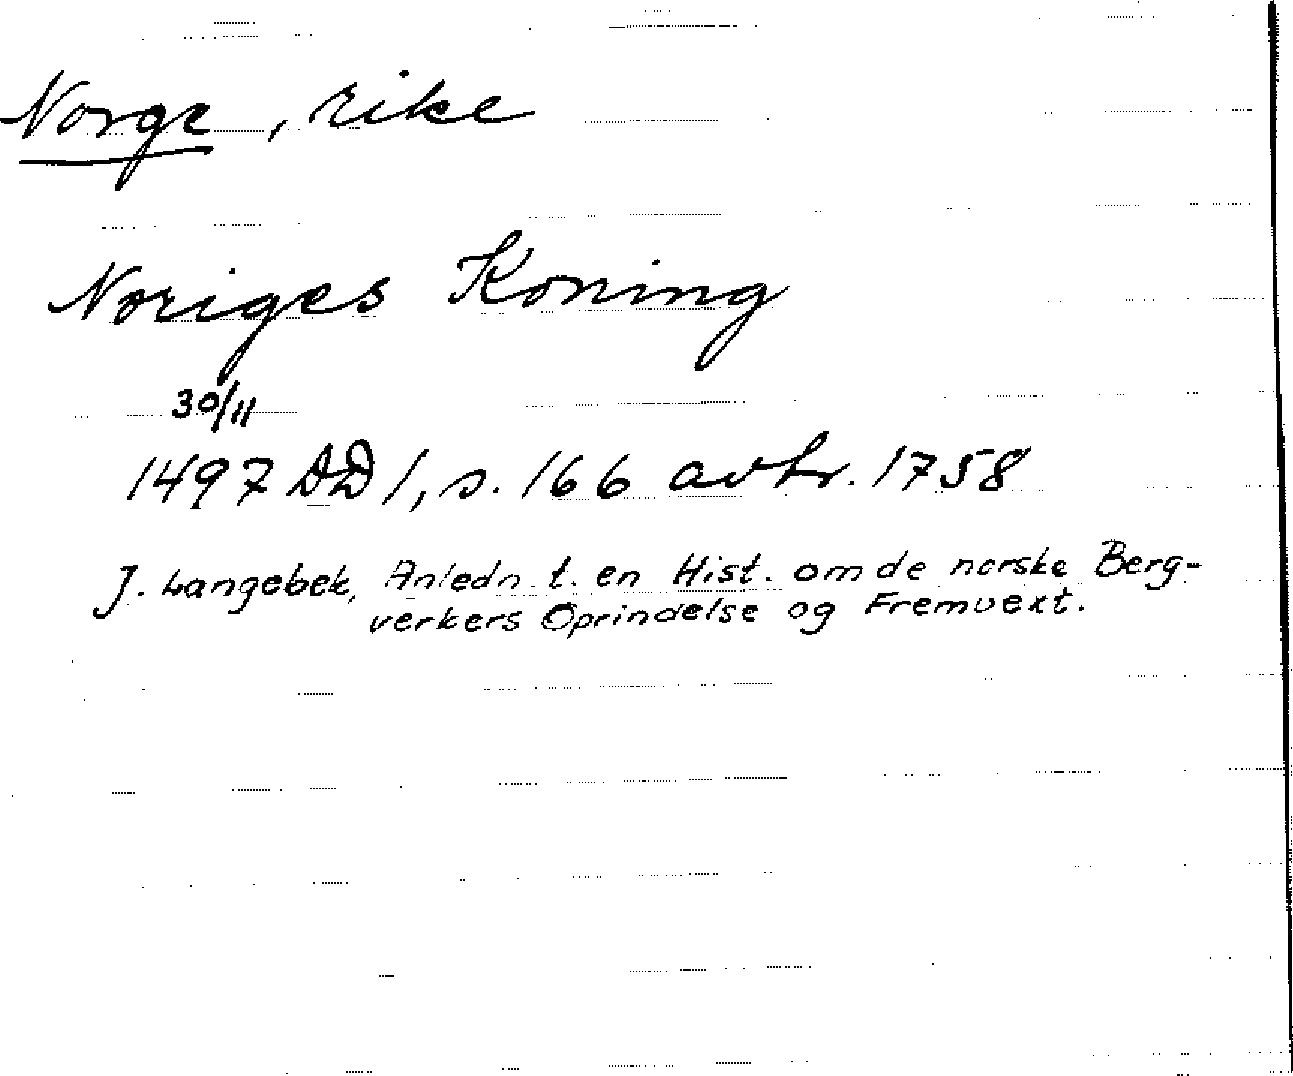 Norge, rike
Noriges Koning
30/11
1497 DD 1, s. 166 avhr. 1758
J. Langebek, Anledn. t. en Hist. om de norske Berg-
verkers Oprindelse og Fremvext.